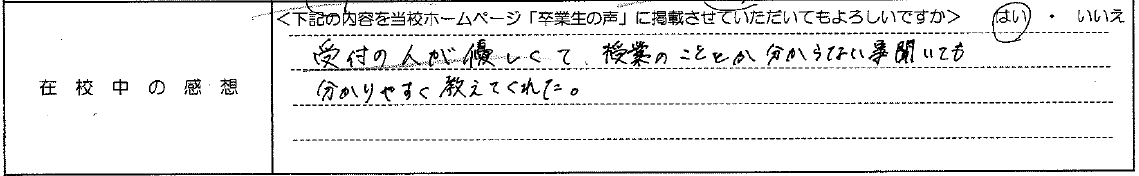 <下記の内容を当校ホームページ「卒業生の声」に掲載させていただいてもよろしいですか> はい ・ いいえ
受付の人が優しくて、授業のこととか分からない事聞いても
在校中の感想
分かりやすく教えてくれた。